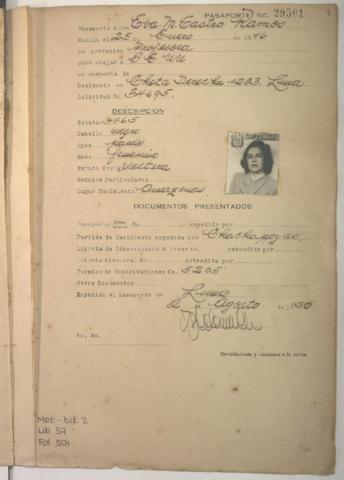 PASAPORTE No. 29501
1
Pasaporte a Don Eva M. Castro Ramos
Nacido el 25 Enero de 1916
de profesión Profesora
para viajar a EE. UU
en compañía de
Residente en Chota Derecha 1233. Lima
Solicitud No. 34695.
DESCRIPCION
Estatura 1.65
Cabello negro
Ojos pardos
Sexo femenino
Estado Civil soltera
Señales Particulares
Lugar Nacimiento Amazonas
DOCUMENTOS PRESENTADOS
Pasaporte No. expedido por
Partida de Nacimiento expedida por Chachapoyas
Libreta de Conscripción Militar No. extendida por
Libreta Electoral No. extendida por
Permiso de Contribuciones No. 5205
Otros Documentos
Expedido el pasaporte en Lima
de Agosto de 1950
Vo. Bo.
Revalidaciones y visaciones a la vuelta.
MRE-DIE 2
Lib 57
Fol 501